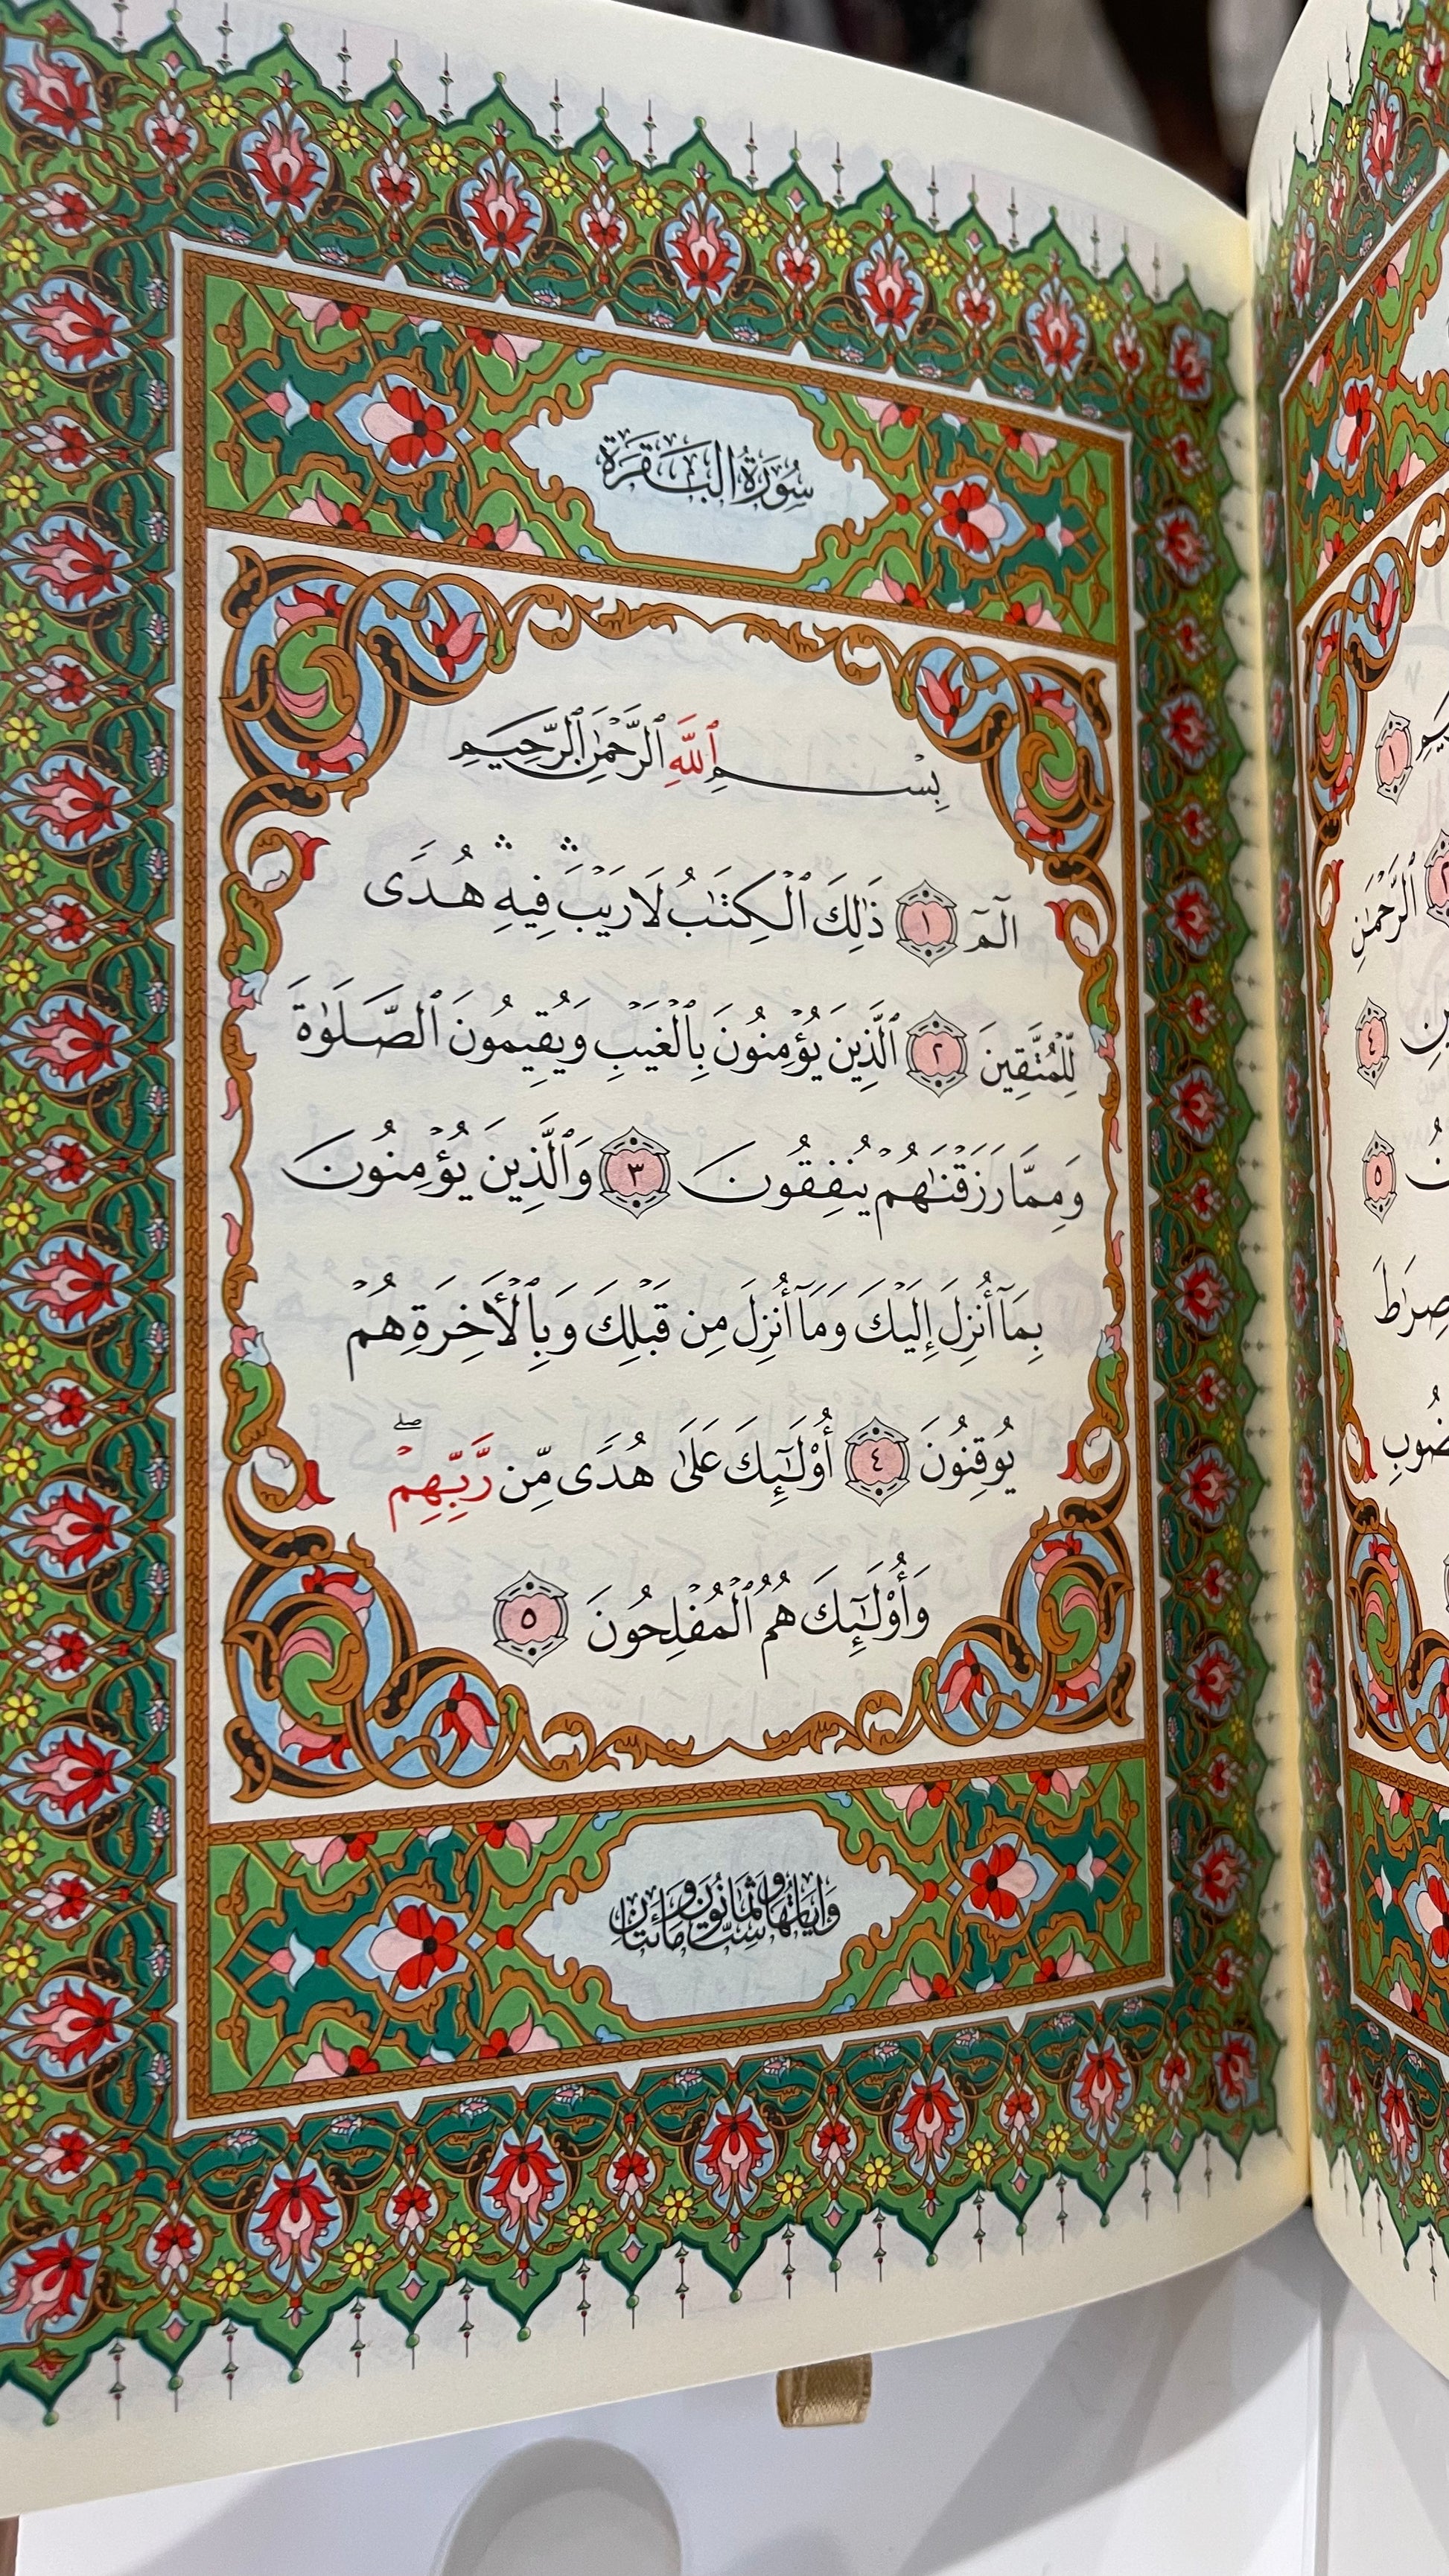 سُورَةُ البَقَرَةِ
بِسۡمِ ٱللَّهِ ٱلرَّحۡمَٰنِ ٱلرَّحِيمِ
الٓمٓ ١ ذَٰلِكَ ٱلۡكِتَٰبُ لَا رَيۡبَۛ فِيهِۛ هُدٗى
لِّلۡمُتَّقِينَ ٢ ٱلَّذِينَ يُؤۡمِنُونَ بِٱلۡغَيۡبِ وَيُقِيمُونَ ٱلصَّلَوٰةَ
وَمِمَّا رَزَقۡنَٰهُمۡ يُنفِقُونَ ٣ وَٱلَّذِينَ يُؤۡمِنُونَ
بِمَآ أُنزِلَ إِلَيۡكَ وَمَآ أُنزِلَ مِن قَبۡلِكَ وَبِٱلۡأٓخِرَةِ هُمۡ
يُوقِنُونَ ٤ أُوْلَٰٓئِكَ عَلَىٰ هُدٗى مِّن رَّبِّهِمۡۖ
وَأُوْلَٰٓئِكَ هُمُ ٱلۡمُفۡلِحُونَ ٥
وَآيَاتُهَا سِتٌّ وَثَمَانُونَ وَمِائَتَانِ
١
ٱلرَّحۡمَٰنِ
٤
٥
صِرَٰطَ